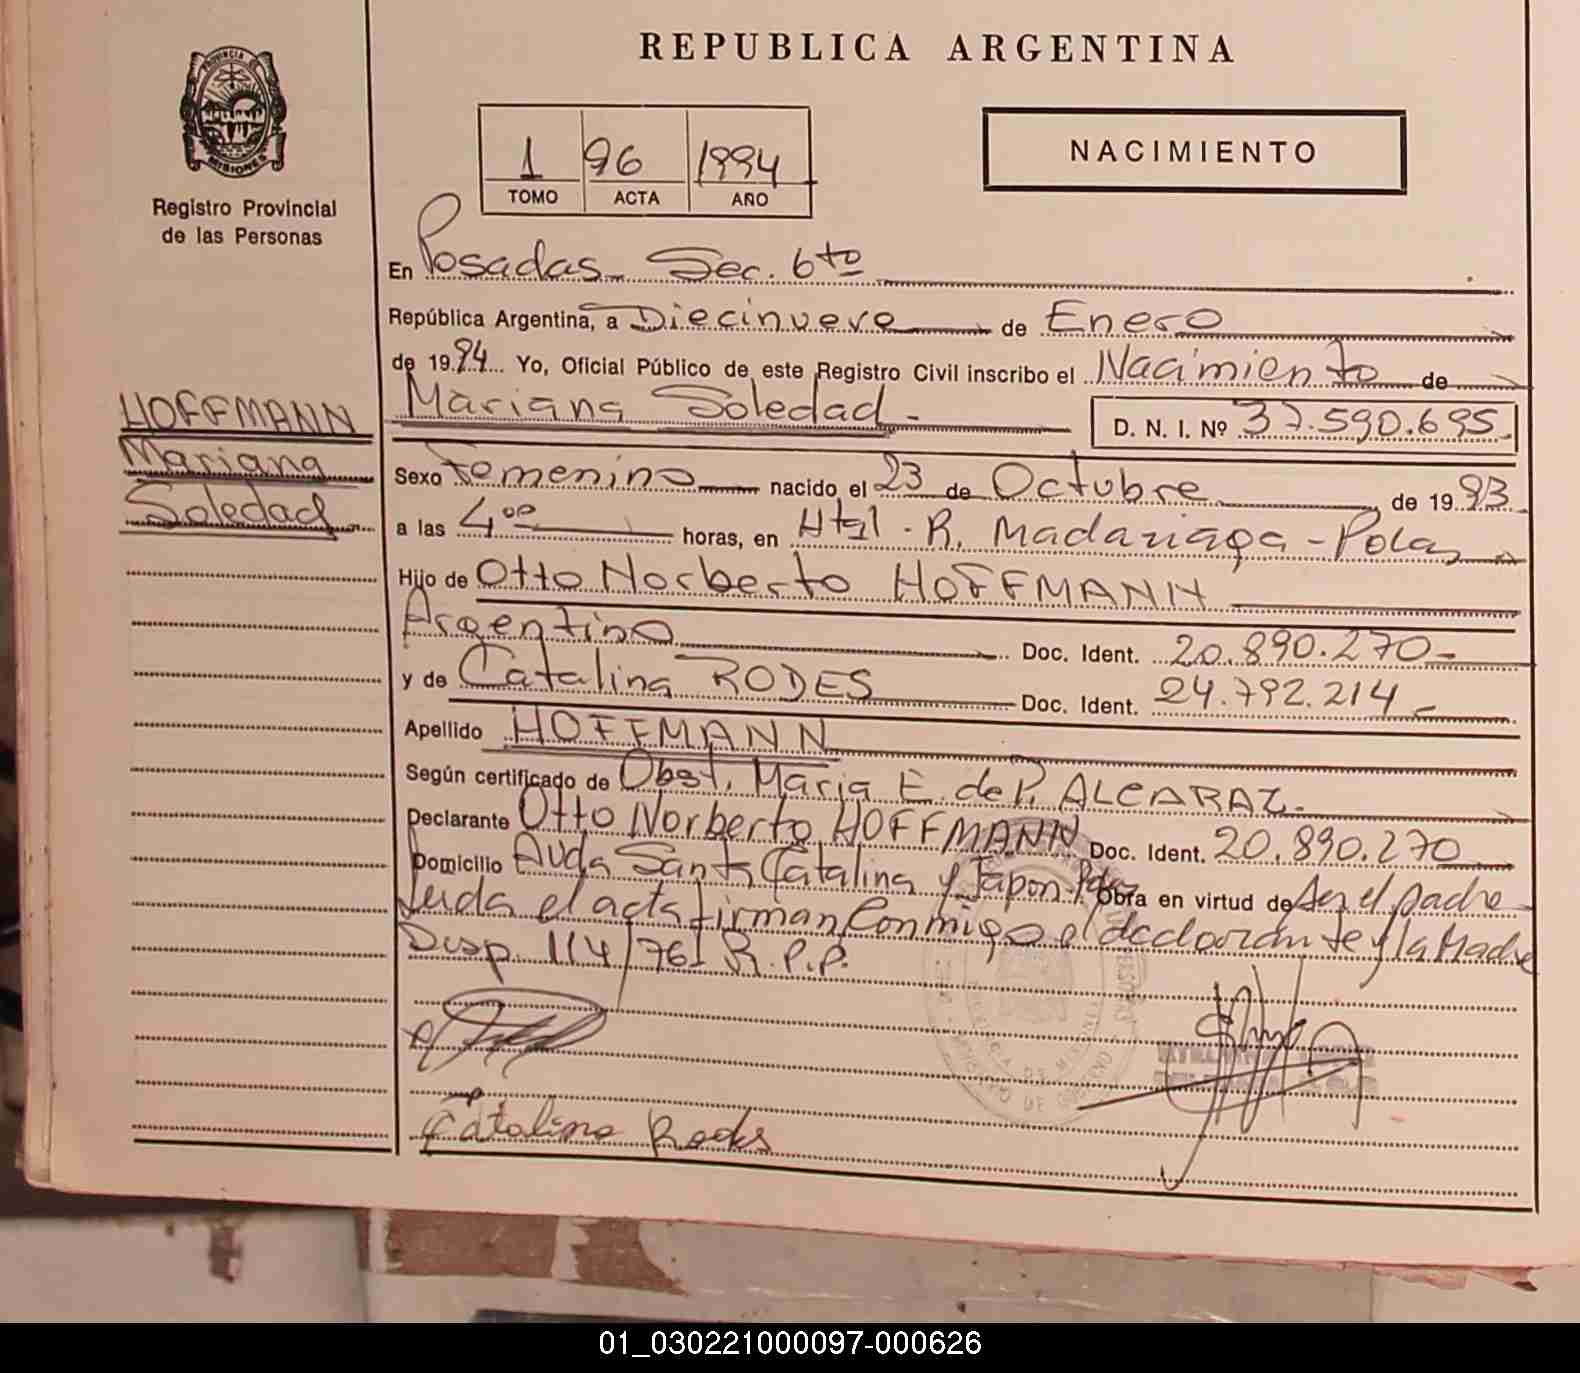 REPUBLICA ARGENTINA
PROVINCIA DE
MISIONES
Registro Provincial
de las Personas
1 96 1994
TOMO ACTA AÑO
NACIMIENTO
En Posadas - Sec. 6to
República Argentina, a Diecinueve de Enero
de 1994 Yo, Oficial Público de este Registro Civil inscribo el Nacimiento de
Mariana Soledad - D. N. I. Nº 37.590.695
HOFFMANN
Mariana
Soledad
Sexo Femenino nacido el 23 de Octubre de 1993
a las 4 00 horas, en Htal - R. Madariaga - Pdas
Hijo de Otto Norberto HOFFMANN
Argentino Doc. Ident. 20.890.270 -
y de Catalina RODES Doc. Ident. 24.792.214
Apellido HOFFMANN
Según certificado de Obst. Maria E. de P. ALCARAZ -
Declarante Otto Norberto HOFFMANN Doc. Ident. 20.890.270
Domicilio Avda Santa Catalina y Japon - Pdas Obra en virtud de Ser el padre
Leida el acta firman Conmigo el declarante y la Madre
Disp. 114/76 R.P.P.
Catalina Rodes
01_030221000097-000626